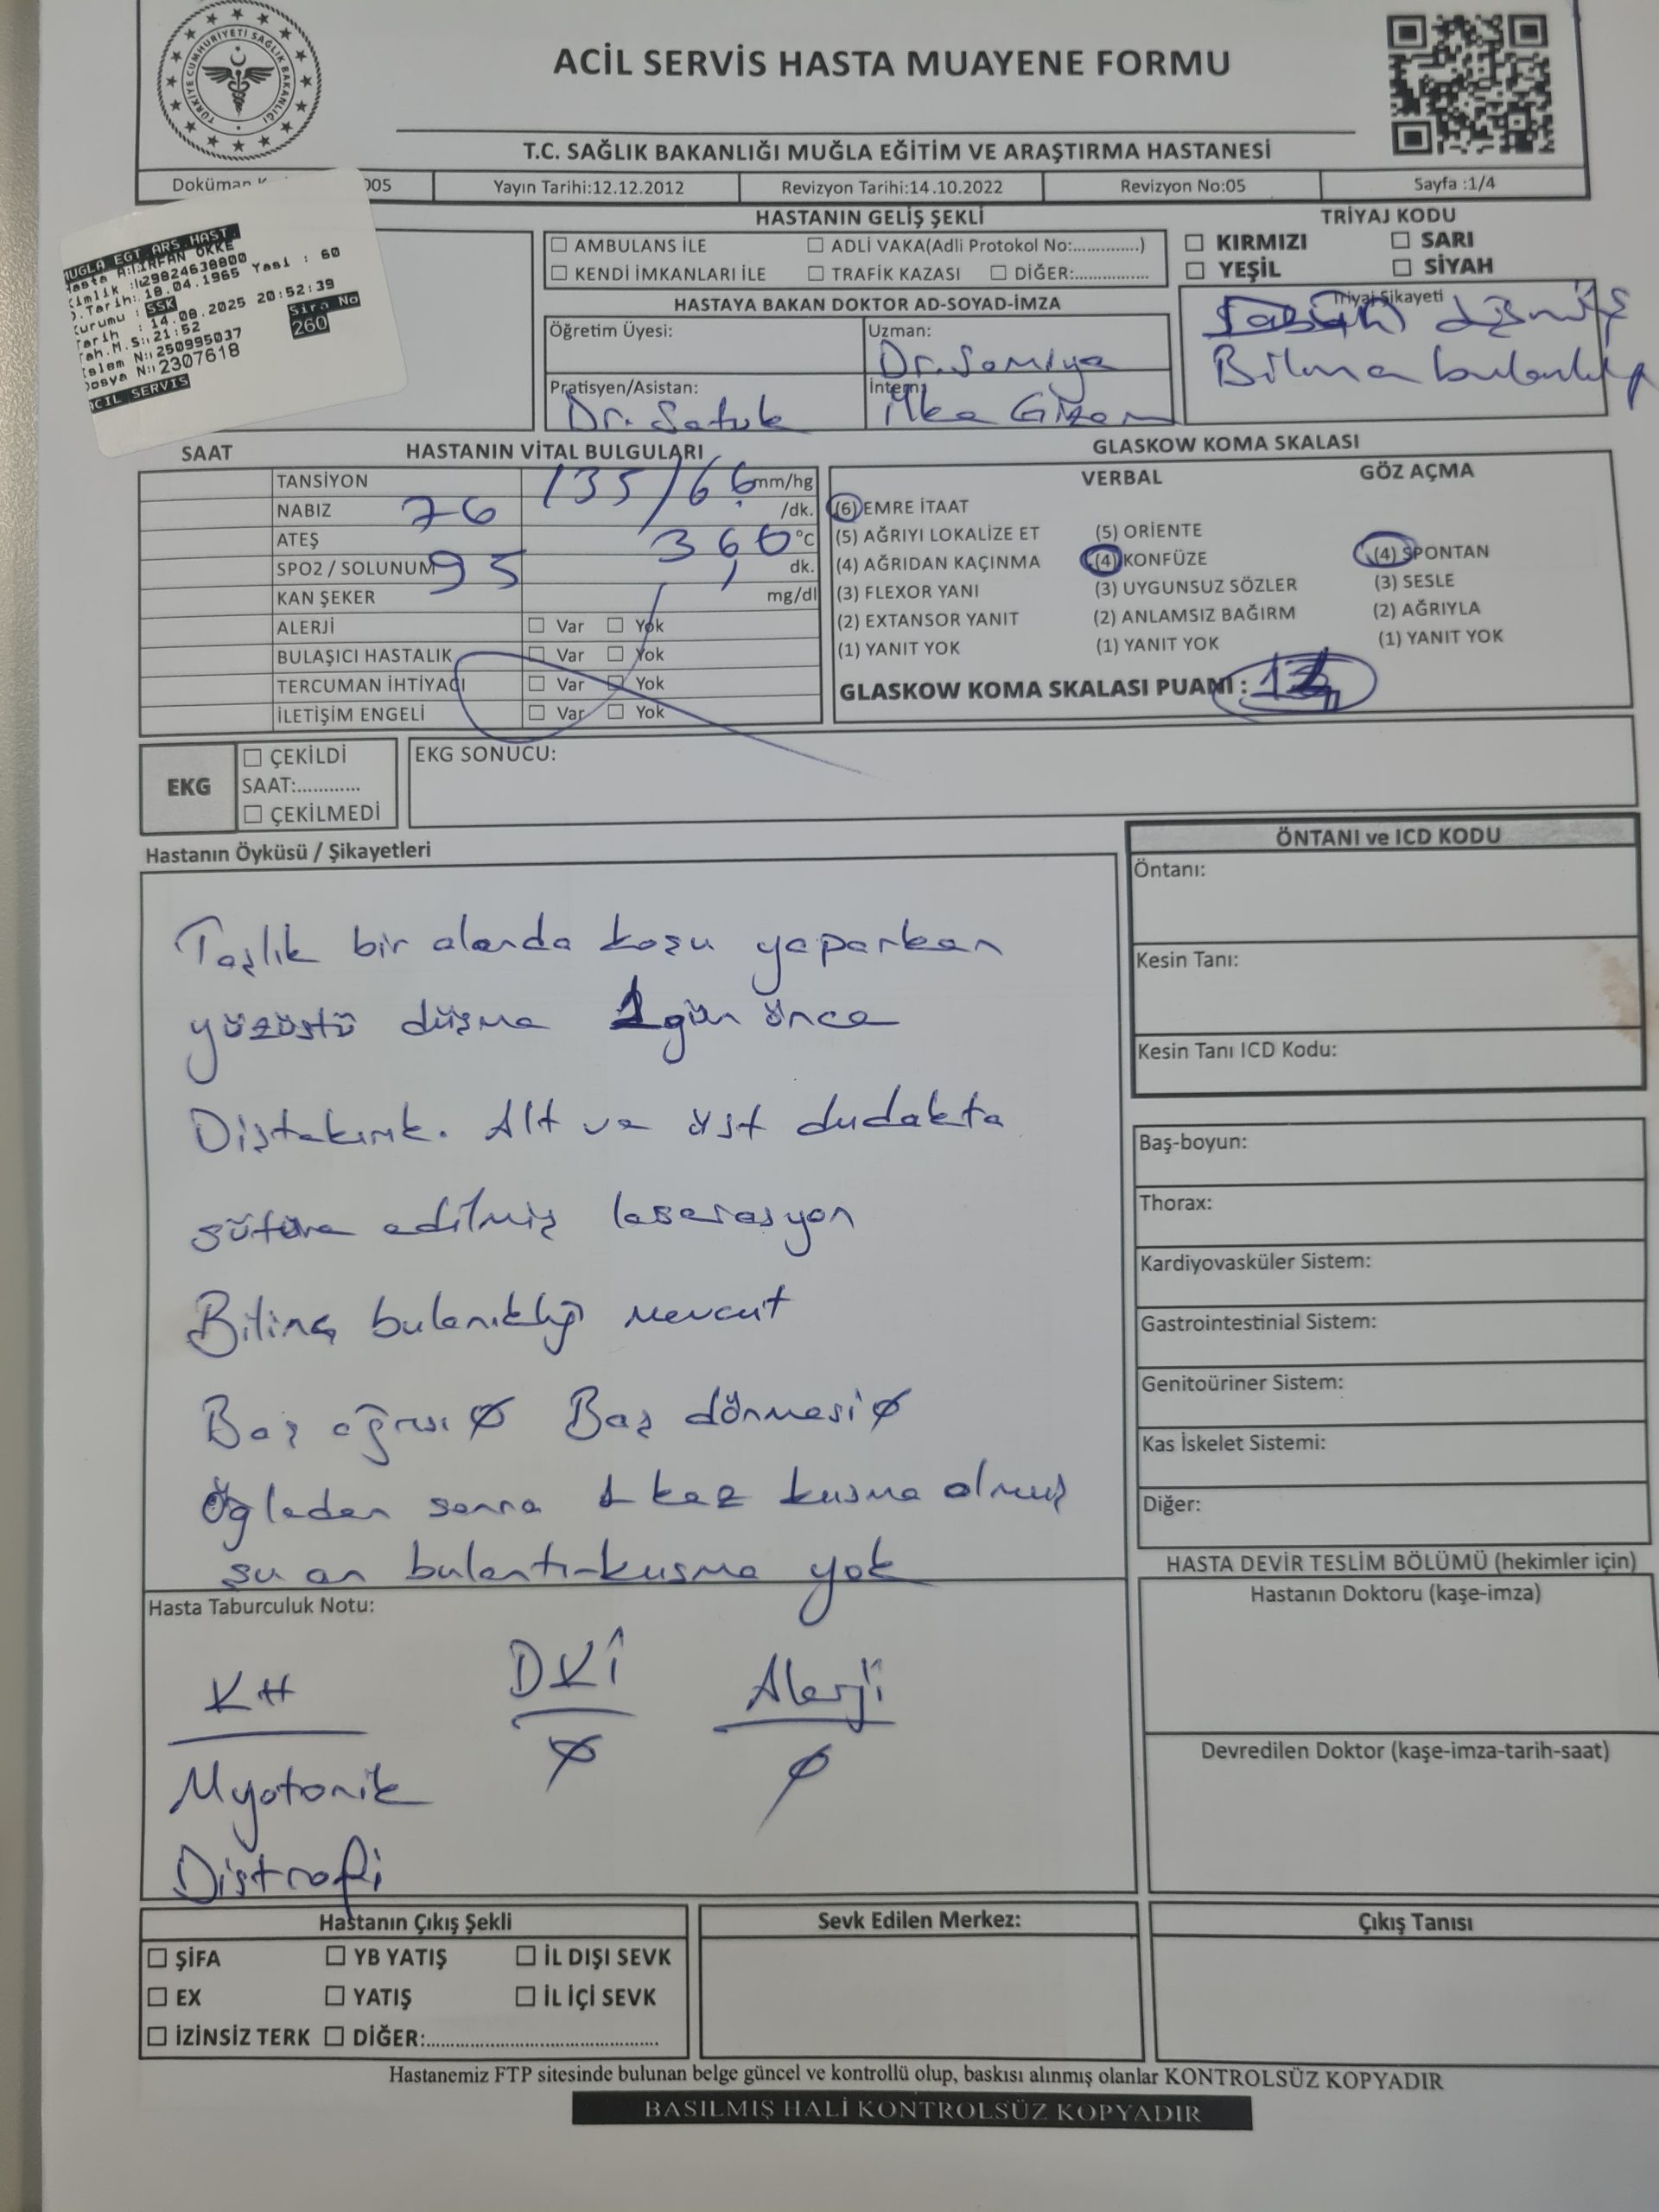 TÜRKİYE CUMHURİYETİ SAĞLIK BAKANLIĞI
ACİL SERVİS HASTA MUAYENE FORMU
T.C. SAĞLIK BAKANLIĞI MUĞLA EĞİTİM VE ARAŞTIRMA HASTANESİ
Doküman 005 Yayın Tarihi:12.12.2012 Revizyon Tarihi:14.10.2022 Revizyon No:05 Sayfa :1/4
MUGLA EGT.ARS.HAST.
Hasta ÖKKE
Kimlik :29824638800
D.Tarih: 18.04.1965 Yasi : 60
Kurumu : SSK
Tarih : 14.08.2025 20:52:39
Tah.M.S:: 21:52 Sira No
İslem N:: 250995037 260
Dosya N:: 2307618
ACİL SERVIS
HASTANIN GELİŞ ŞEKLİ
AMBULANS İLE ADLİ VAKA(Adli Protokol No:.............)
KENDİ İMKANLARI İLE TRAFİK KAZASI DİĞER:................
TRİYAJ KODU
KIRMIZI SARI
YEŞİL SİYAH
HASTAYA BAKAN DOKTOR AD-SOYAD-İMZA
Öğretim Üyesi: Uzman:
Dr. Samiya
Pratisyen/Asistan: İntern:
Dr. Satuk İlke Gizem
Triyaj Şikayeti
düşmüş
SAAT HASTANIN VİTAL BULGULARI
TANSİYON 135/66 mm/hg
NABIZ 76 /dk.
ATEŞ 36,6 °C
SPO2 / SOLUNUM 95 dk.
KAN ŞEKER mg/dl
ALERJİ Var Yok
BULAŞICI HASTALIK Var Yok
TERCUMAN İHTİYACI Var Yok
İLETİŞİM ENGELİ Var Yok
GLASKOW KOMA SKALASI
VERBAL GÖZ AÇMA
(6) EMRE İTAAT
(5) AĞRIYI LOKALİZE ET (5) ORİENTE
(4) AĞRIDAN KAÇINMA (4) KONFÜZE (4) SPONTAN
(3) FLEXOR YANI (3) UYGUNSUZ SÖZLER (3) SESLE
(2) EXTANSOR YANIT (2) ANLAMSIZ BAĞIRM (2) AĞRIYLA
(1) YANIT YOK (1) YANIT YOK (1) YANIT YOK
GLASKOW KOMA SKALASI PUANI :
EKG
ÇEKİLDİ
SAAT:............
ÇEKİLMEDİ
EKG SONUCU:
Hastanın Öyküsü / Şikayetleri
Taşlık bir alanda koşu yaparken
yüzüstü düşme 1 gün önce
Diştekırık. Alt ve üst dudakta
süture edilmiş laserasyon
Bilinç bulanıklığı mevcut
Baş ağrısı Ø Baş dönmesi Ø
Öğleden sonra 1 kez kusma olmuş
şu an bulantı-kusma yok
ÖNTANI ve ICD KODU
Öntanı:
Kesin Tanı:
Kesin Tanı ICD Kodu:
Baş-boyun:
Thorax:
Kardiyovasküler Sistem:
Gastrointestinial Sistem:
Genitoüriner Sistem:
Kas İskelet Sistemi:
Diğer:
Hasta Taburculuk Notu:
KH DKİ Alerji
Ø Ø
Myotonik
Distrofi
HASTA DEVİR TESLİM BÖLÜMÜ (hekimler için)
Hastanın Doktoru (kaşe-imza)
Devredilen Doktor (kaşe-imza-tarih-saat)
Hastanın Çıkış Şekli
ŞİFA YB YATIŞ İL DIŞI SEVK
EX YATIŞ İL İÇİ SEVK
İZİNSİZ TERK DİĞER:............................................
Sevk Edilen Merkez:
Çıkış Tanısı
Hastanemiz FTP sitesinde bulunan belge güncel ve kontrollü olup, baskısı alınmış olanlar KONTROLSÜZ KOPYADIR
BASILMIŞ HALİ KONTROLSÜZ KOPYADIR